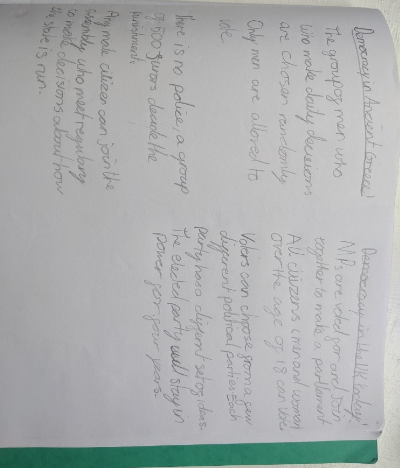 Democracy in Ancient Greece!
The group of men who
who make daily decisions
are chosen randomly
Only men are allowed to
vote.
there is no police, a group
of 500 jurors decide the
punishment.
Any male citizen can join the
assembly who meet regulary
to make decisions about how
the state is run.
Democracy in the UK today!
MPs are voted for and Join
together to make a parliament
All citizens (men and women)
over the age of 18 can vote
Voters can choose from a few
different political parties Each
party has a different set of ideas.
The elected party will stay in
power for four years.